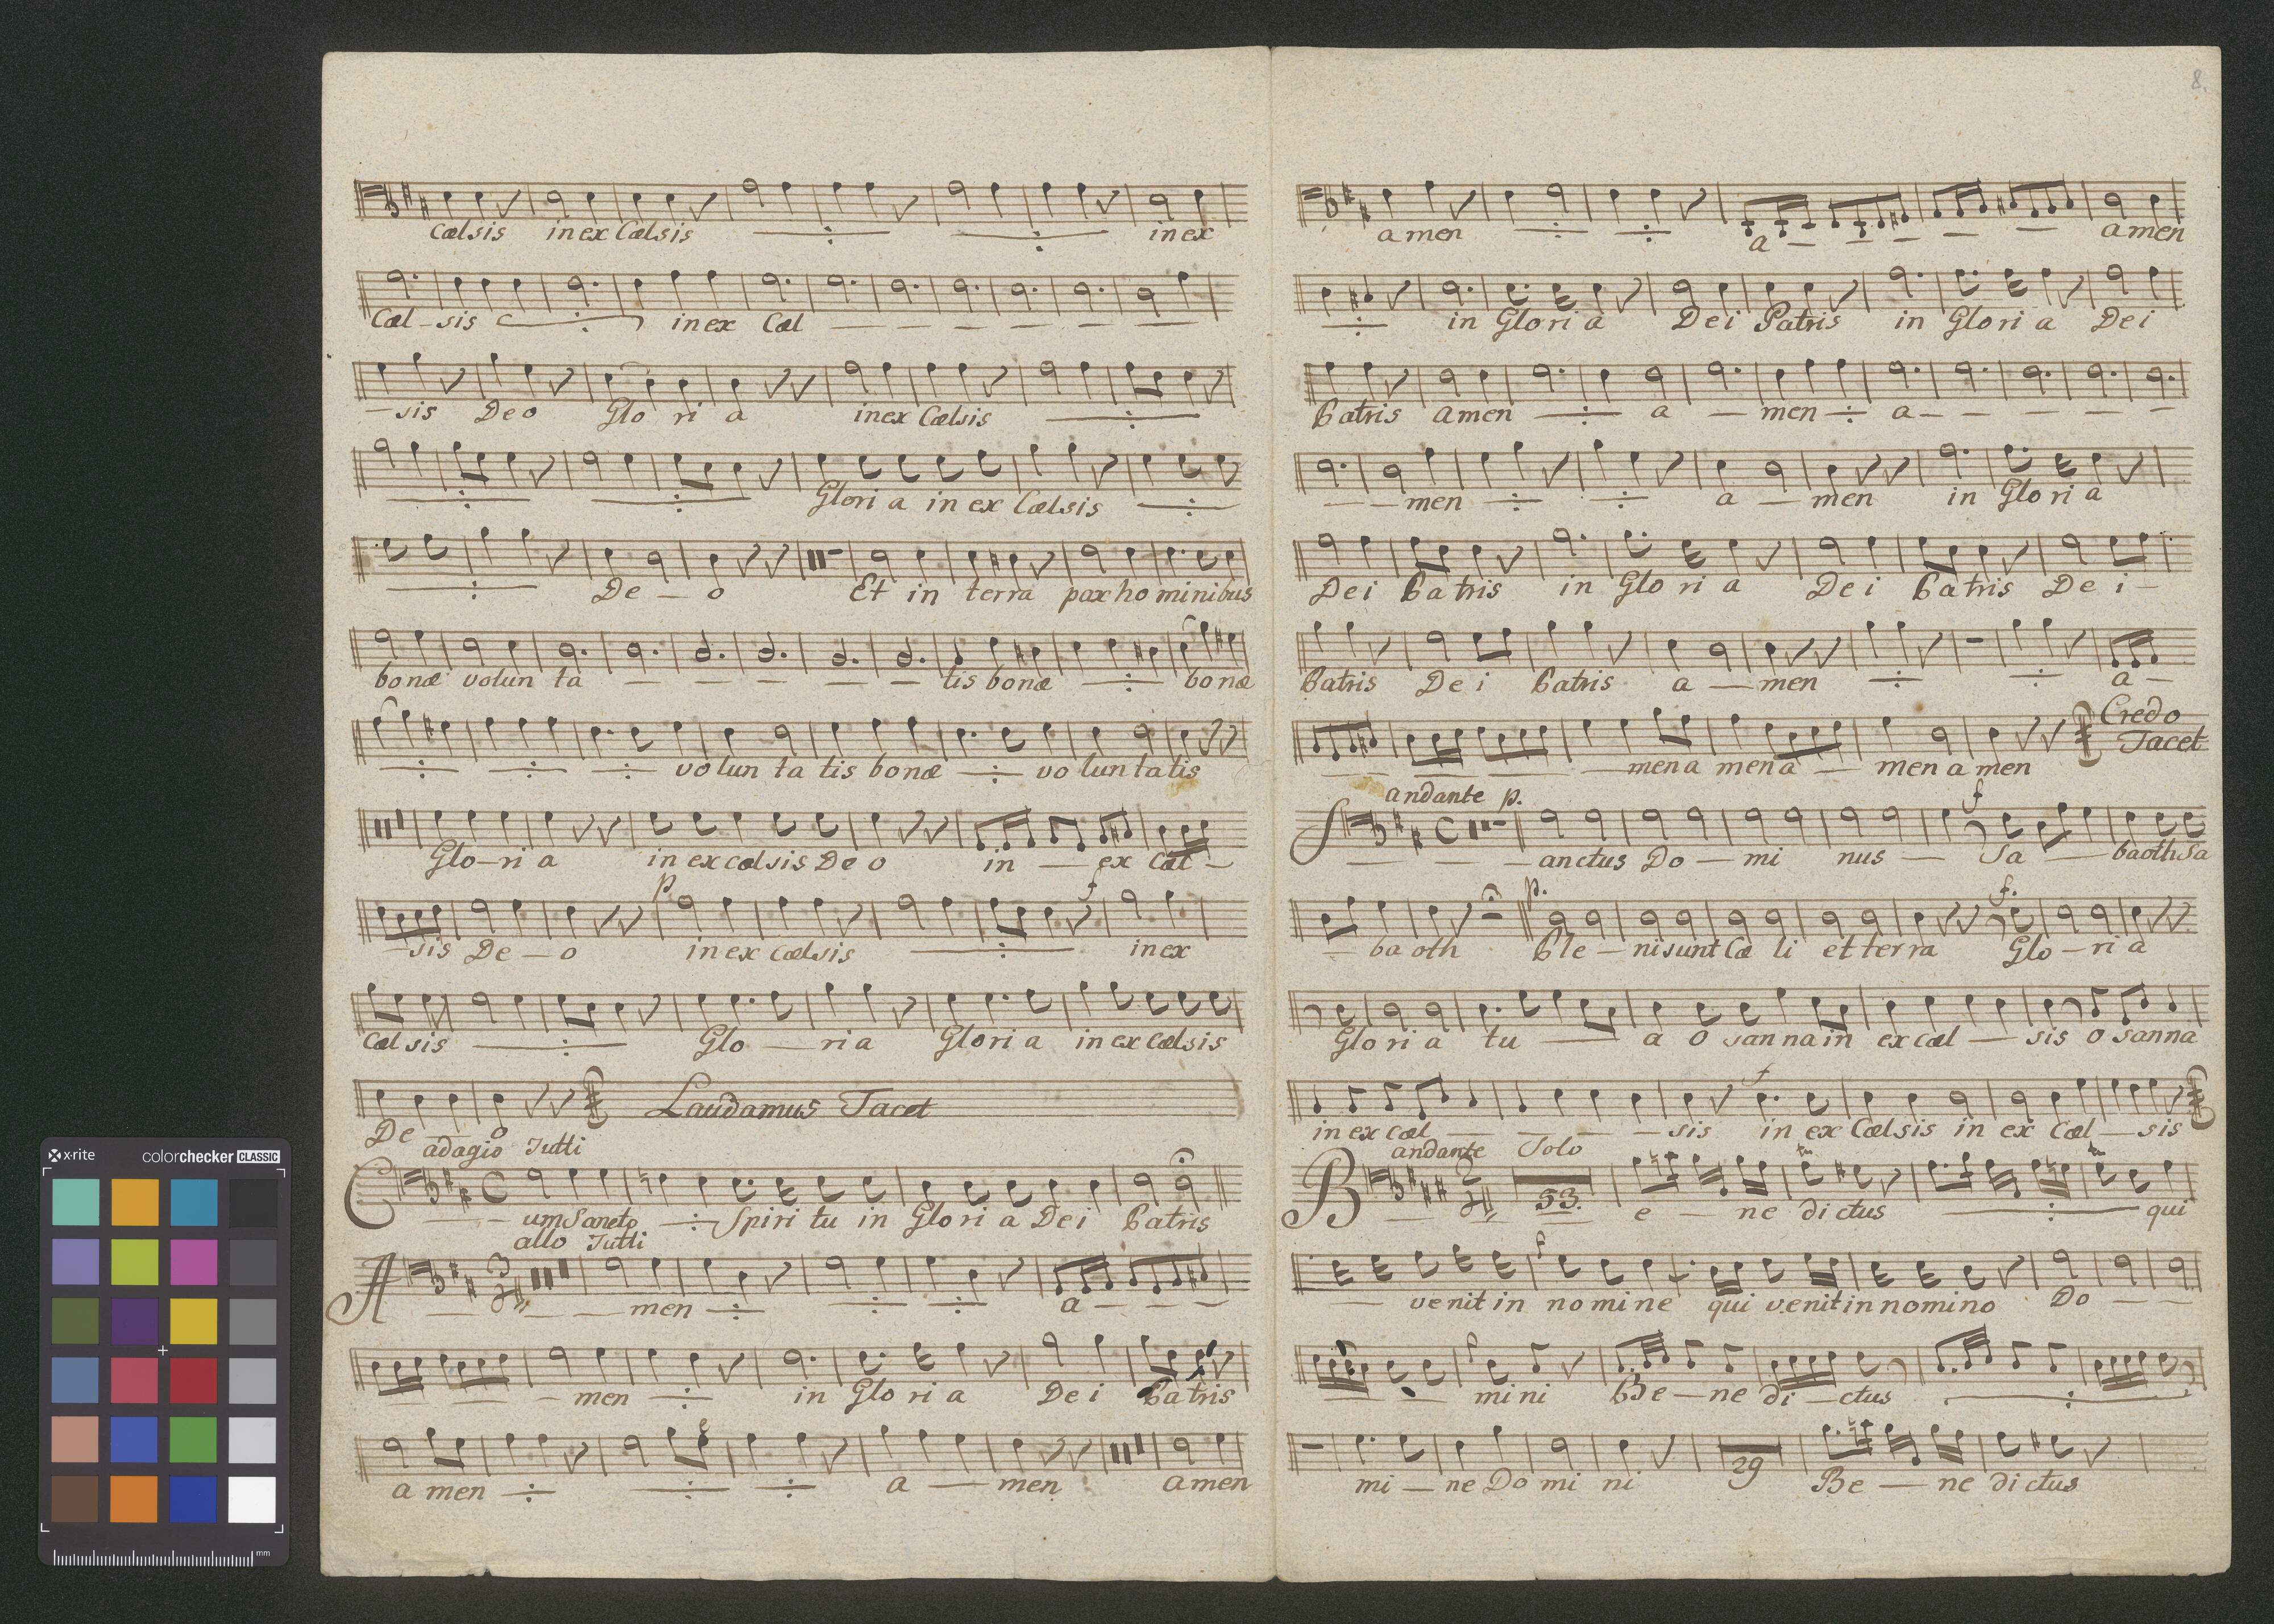 Cælsis in ex Cælsis in ex
Cæl - sis in ex Cæl
sis Deo Glo ri a in ex Cælsis
Glori a in ex Cælsis
De - o Et in terra pax ho minibus
bonæ volun ta tis bonæ bonæ
vo lun ta tis bonæ vo lun ta tis
Glo - ri a in ex cælsis De o in - ex Cæl -
p f
- sis De - o in ex cælsis in ex
Cæl sis Glo - ri a Glori a in ex Cælsis
De o Laudamus Tacet
adagio Tutti
C um Sancto Spiri tu in Glo ri a Dei Patris
allo Tutti
A men a -
- men in Glo ri a De i Patris
a men a - men amen
8.
a men a - amen
in Glo ri a Dei Patris in Glo ri a Dei
Patris amen a - men a -
- men a - men in Glo ri a
Dei Patris in Glo ri a Dei Patris De i -
Patris De i Patris a - men a -
men a men a - men a men Credo
Tacet
andante p. f
S anctus Do - mi nus - Sa - baoth Sa
p. f.
- ba oth Ple - ni sunt Cæ li et ter ra Glo - ri a
Glo ri a tu - a O san na in ex cæl - sis o sanna
f
in ex cæl - sis in ex Cælsis in ex Cæl - sis
andante Solo
B 53. e - ne dictus qui
f
venit in nomine qui venit in nomino Do
mini Be - ne di - ctus
mi - ne Do mi ni 29 Be - ne dictus
x-rite colorchecker CLASSIC
mm